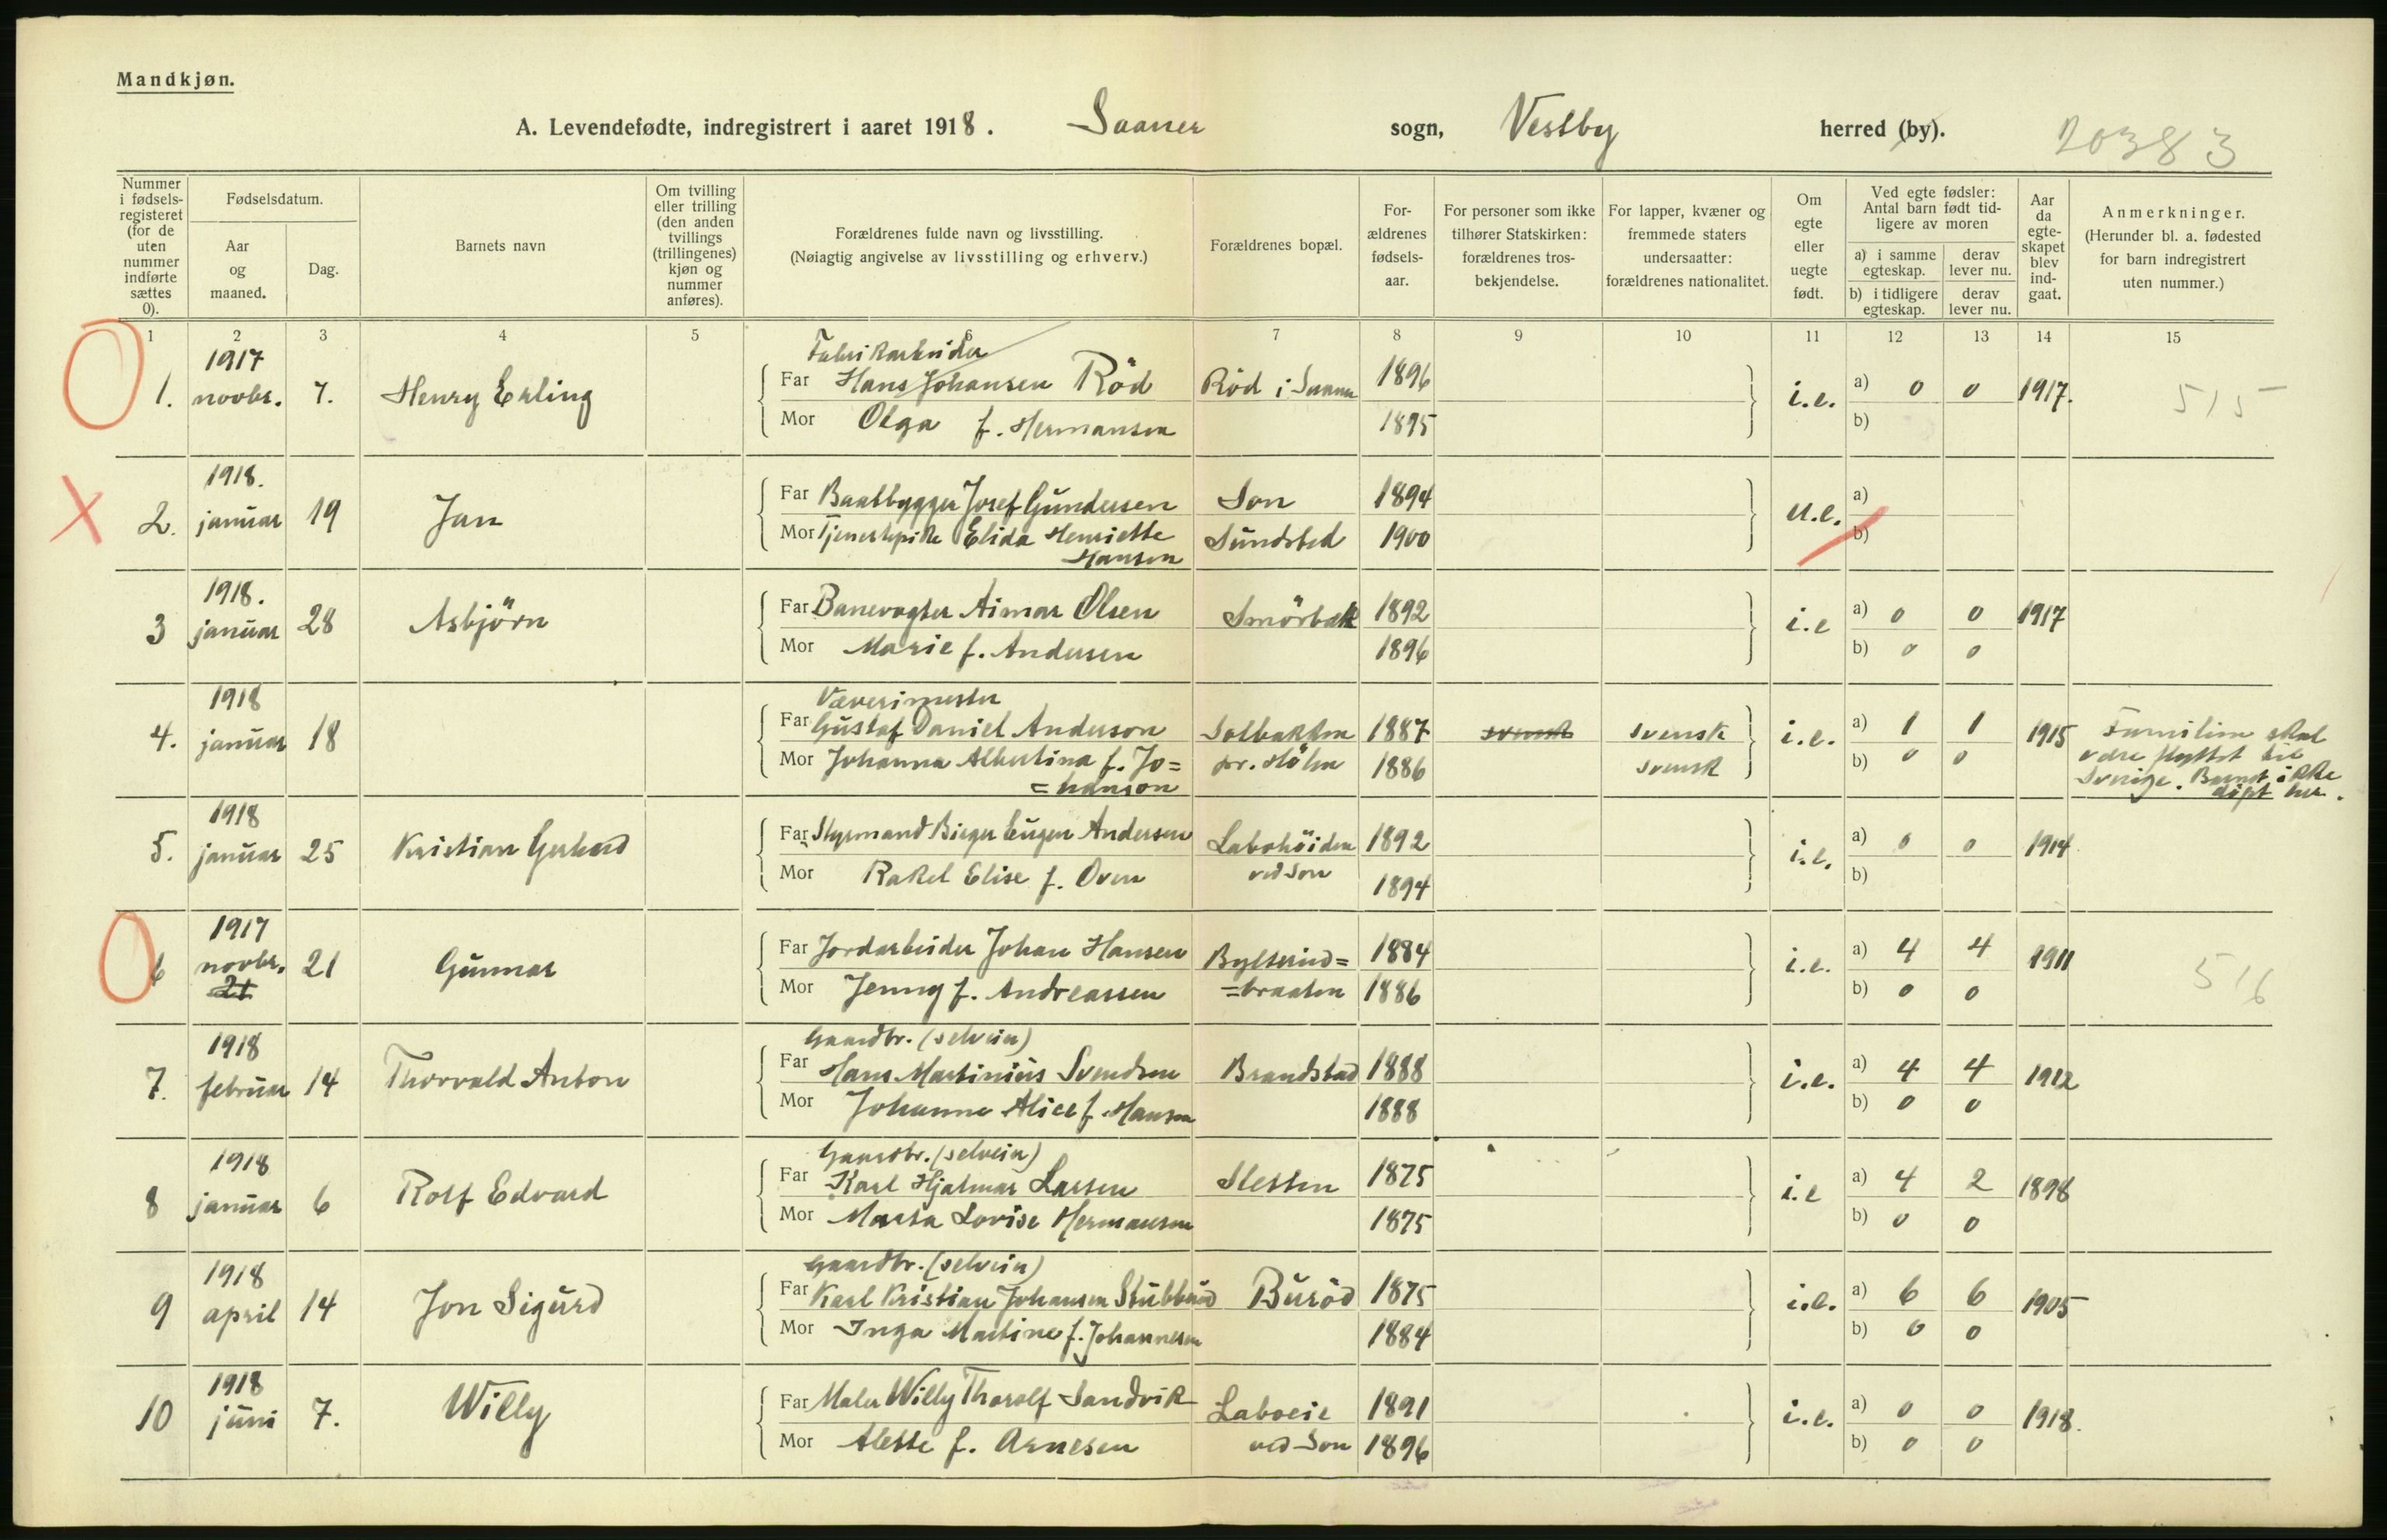 Mandkjøn.
A. Levendefødte, indregistrert i aaret 1918. Saaner sogn, Vestby herred (by). 20383
Nummer i fødsels-registeret (for de uten nummer indførte sættes 0).
Fødselsdatum.
Aar og maaned.
Dag.
Barnets navn
Om tvilling eller trilling (den anden tvillings (trillingenes) kjøn og nummer anføres).
Forældrenes fulde navn og livsstilling.
(Nøiagtig angivelse av livsstilling og erhverv.)
Forældrenes bopæl.
For-ældrenes fødsels-aar.
For personer som ikke tilhører Statskirken: forældrenes tros-bekjendelse.
For lapper, kvæner og fremmede staters undersaatter: forældrenes nationalitet.
Om egte eller uegte født.
Ved egte fødsler: Antal barn født tid-ligere av moren
a) i samme egteskap.
derav lever nu.
b) i tidligere egteskap.
derav lever nu.
Aar da egte-skapet blev ind-gaat.
Anmerkninger.
(Herunder bl. a. fødested for barn indregistrert uten nummer.)
1 2 3 4 5 6 7 8 9 10 11 12 13 14 15
1917 Fabrikarbeider
1. novbr. 7. Henry Erling Far Hans Johansen Röd Röd i Saaner 1896 i.e. a) 0 0 1917. 515
Mor Olga f. Hermansen 1895 b)
1918.
2. januar 19 Jan Far Baatbygger Josef Gundersen Son 1894 u.e. a)
Mor Tjenestepike Elida Henriette Sundsted 1900 b)
Hansen
1918.
3 januar 28 Asbjörn Far Banevogter Aimar Olsen Smörbæk 1892 i.e a) 0 0 1917
Mor Marie f. Andersen 1896 b) 0 0
1918 Væverimester
4. januar 18 Far Gustaf Daniel Anderson Solbakken 1887 svensk svensk i.e. a) 1 1 1915 Familien skal
Mor Johanna Albertina f. Jo= pr. Hölen 1886 svensk b) 0 0 være flyttet til
=hanson Sverige. Barnet ikke
döpt her.
1918
5. januar 25 Kristian Gerhard Far Styrmand Birger Eugen Andersen Labohöiden 1892 i.e. a) 0 0 1914
Mor Rakel Elise f. Oven ved Son 1894 b)
1917
6 novbr. 21 Gunnar Far Jordarbeider Johan Hansen Bylterud= 1884 i.e. a) 4 4 1911 516
21 Mor Jenny f. Andreassen =braaten 1886 b) 0 0
1918 Gaardbr. (selveier)
7. februar 14 Thorvald Anton Far Hans Martinius Svendsen Brandstad 1888 i.e. a) 4 4 1912
Mor Johanne Alice f. Hansen 1888 b) 0 0
1918 Gaardbr. (selveier)
8 januar 6 Rolf Edvard Far Karl Hjalmar Larsen Sletten 1875 i.e a) 4 2 1898
Mor Marta Lovise Hermansen 1875 b) 0 0
1918 Gaardbr. (selveier)
9 april 14 Jon Sigurd Far Karl Kristian Johansen Stubberud Buröd 1875 i.e. a) 6 6 1905
Mor Inga Martine f. Johannesen 1884 b) 0 0
1918
10 juni 7. Willy Far Maler Willy Thorolf Sandvik Laboeie 1891 i.e. a) 0 0 1918.
Mor Alette f. Arnesen ved Son 1896 b) 0 0